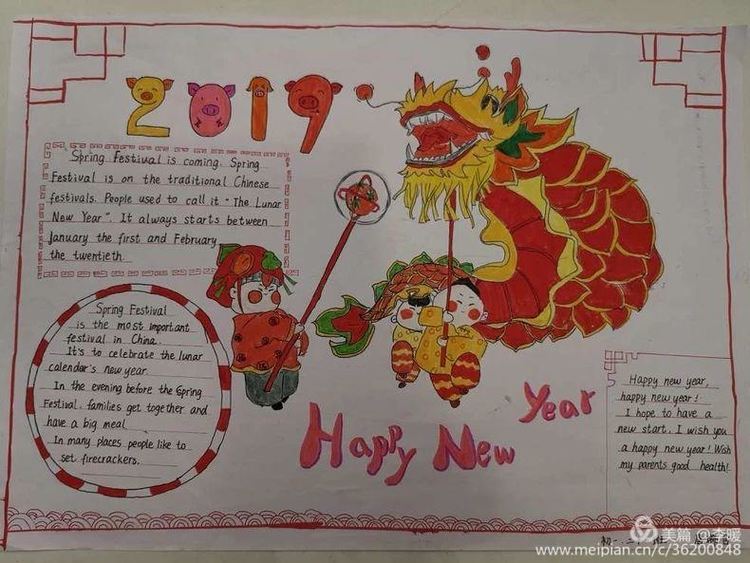 2019
Spring Festival is coming. Spring
Festival is on the traditional Chinese
festivals. People used to call it "The Lunar
New Year". It always starts between
january the first and February
the twentieth.
Spring Festival
is the most important
festival in China.
It's to celebrate the lunar
calendar's new year.
In the evening before the Spring
Festival, families get together and
have a big meal.
In many places people like to
set firecrackers.
Happy New Year
Happy new year,
happy new year!
I hope to have a
new start. I wish you
a happy new year! Wish
my parents good health!
美篇 @李暖
www.meipian.cn/c/36200848